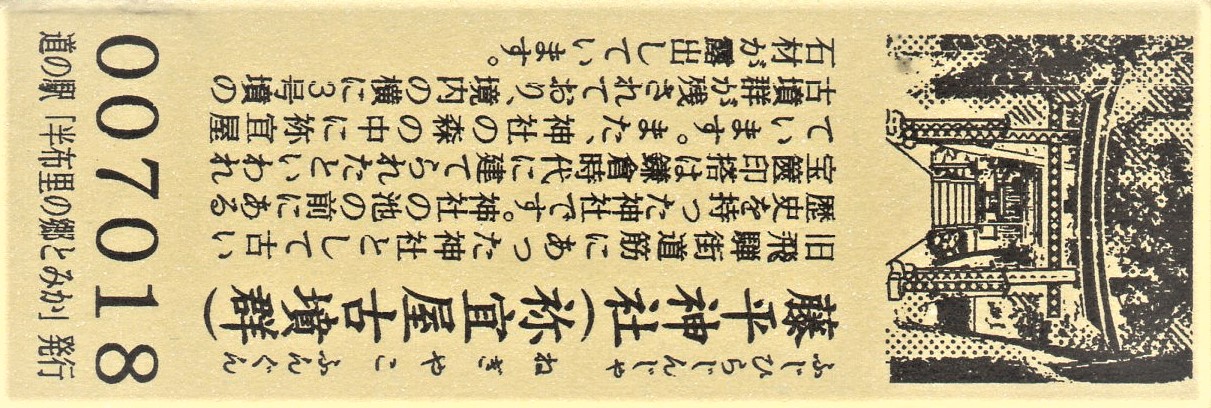 ふじひらじんじゃ　ねぎやこふんぐん
藤平神社(祢宜屋古墳群)
旧飛騨街道筋にあった神社として古い
歴史を持った神社です。神社の池の前にある
宝篋印塔は鎌倉時代に建てられたといわれ
ています。また、神社の森の中に祢宜屋
古墳群が残されており、境内の横に3号墳の
石材が露出しています。
007018
道の駅「半布里の郷とみか」発行